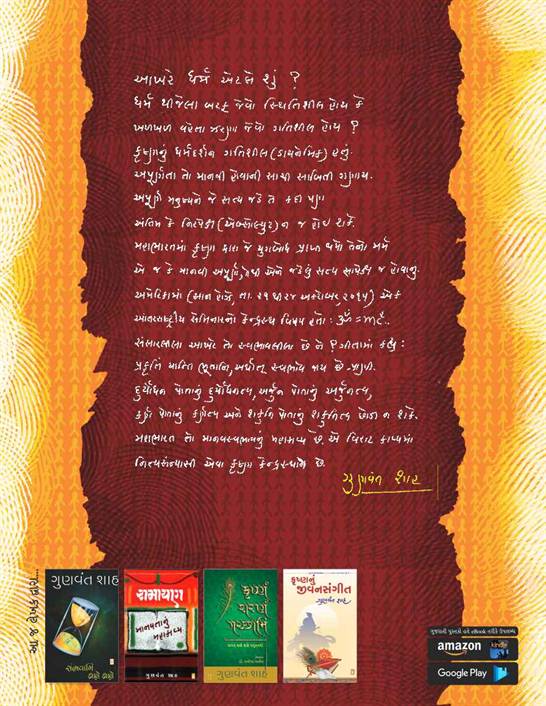 આખરે ધર્મ એટલે શું ?
ધર્મ થીજેલા બરફ જેવો સ્થિતિશીલ હોય કે
ખળખળ વહેતા ઝરણા જેવો ગતિશીલ હોય ?
કૃષ્ણનું ધર્મદર્શન ગતિશીલ (ડાયનેમિક) હતું.
અપૂર્ણતા તો માનવી હોવાની સાચી સાબિતી ગણાય.
અપૂર્ણ મનુષ્યને જે સત્ય જડે તે કદી પણ
અંતિમ કે નિરપેક્ષ (એબ્સોલ્યુટ) ન જ હોઈ શકે.
મહાભારતમાં કૃષ્ણ દ્વારા જે યુગબોધ પ્રાપ્ત થયો તેનો મર્મ
એ જ કે માનવી અપૂર્ણ છે, તેથી એને જડેલું સત્ય સાપેક્ષ જ હોવાનું.
અમેરિકામાં (સાન હોઝે, તા. ૨૧ થી ૨૪ ઓક્ટોબર, ૨૦૧૫) એક
આંતરરાષ્ટ્રીય સેમિનારનો કેન્દ્રસ્થ વિષય હતો : ૐ = mc².
સંસારલીલા આખરે તો સ્વભાવલીલા છે ને ? ગીતામાં કહ્યું :
પ્રકૃતિં યાન્તિ ભૂતાનિ, અર્થાત્ સ્વભાવે જાય છે પ્રાણી.
દુર્યોધન પોતાનું દુર્યોધનત્વ, અર્જુન પોતાનું અર્જુનત્વ,
કર્ણ પોતાનું કર્ણત્વ અને શકુનિ પોતાનું શકુનિત્વ છોડી ન શકે.
મહાભારત તો માનવસ્વભાવનું મહાકાવ્ય છે. એ વિરાટ કાવ્યમાં
નિત્યસંન્યાસી એવા કૃષ્ણ કેન્દ્રસ્થાને છે.
ગુણવંત શાહ
આ જ લેખક દ્વારા...
ગુણવંત શાહ
રામાયણ
માનવતાનું મહાકાવ્ય
ગુણવંત શાહ
કૃષ્ણં
શરણં
ગચ્છામિ
ગુણવંત શાહ
કૃષ્ણનું
જીવનસંગીત
ગુણવંત શાહ
amazon kindle
Google Play